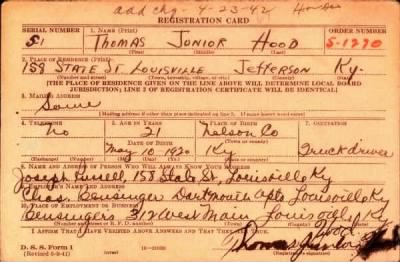 add chg. 4-23-42
REGISTRATION CARD
SERIAL NUMBER 1. Name (Print) ORDER NUMBER
S1 THOMAS JUNIOR HOOD S-1290
(First) (Middle) (Last)
2. PLACE OF RESIDENCE (Print)
158 STATE ST LOUISVILLE JEFFERSON Ky.
(Number and street) (Town, township, village, or city) (County) (State)
[THE PLACE OF RESIDENCE GIVEN ON THE LINE ABOVE WILL DETERMINE LOCAL BOARD
JURISDICTION; LINE 2 OF REGISTRATION CERTIFICATE WILL BE IDENTICAL]
3. MAILING ADDRESS
Same
[Mailing address if other than place indicated on line 2. If same, insert word same]
4. TELEPHONE 5. AGE IN YEARS 6. PLACE OF BIRTH 7. OCCUPATION
no 21 Nelson Co
DATE OF BIRTH (Town or county)
May 10 1920 Ky Truck driver
(Exchange) (Number) (Mo.) (Day) (Yr.) (State or country)
8. NAME AND ADDRESS OF PERSON WHO WILL ALWAYS KNOW YOUR ADDRESS
Joseph Russell, 158 State St, Louisville Ky
9. EMPLOYER'S NAME AND ADDRESS
Chas. Bensinger Dartmouth Apts Louisville Ky
10. PLACE OF EMPLOYMENT OR BUSINESS
Bensingers 312 West Main Louisville Ky
(Number and street or R. F. D. number) (Town) (County) (State)
I AFFIRM THAT I HAVE VERIFIED ABOVE ANSWERS AND THAT THEY ARE TRUE.
Hood
D. S. S. Form 1 Thomas Junior
(Revised 6-9-41)